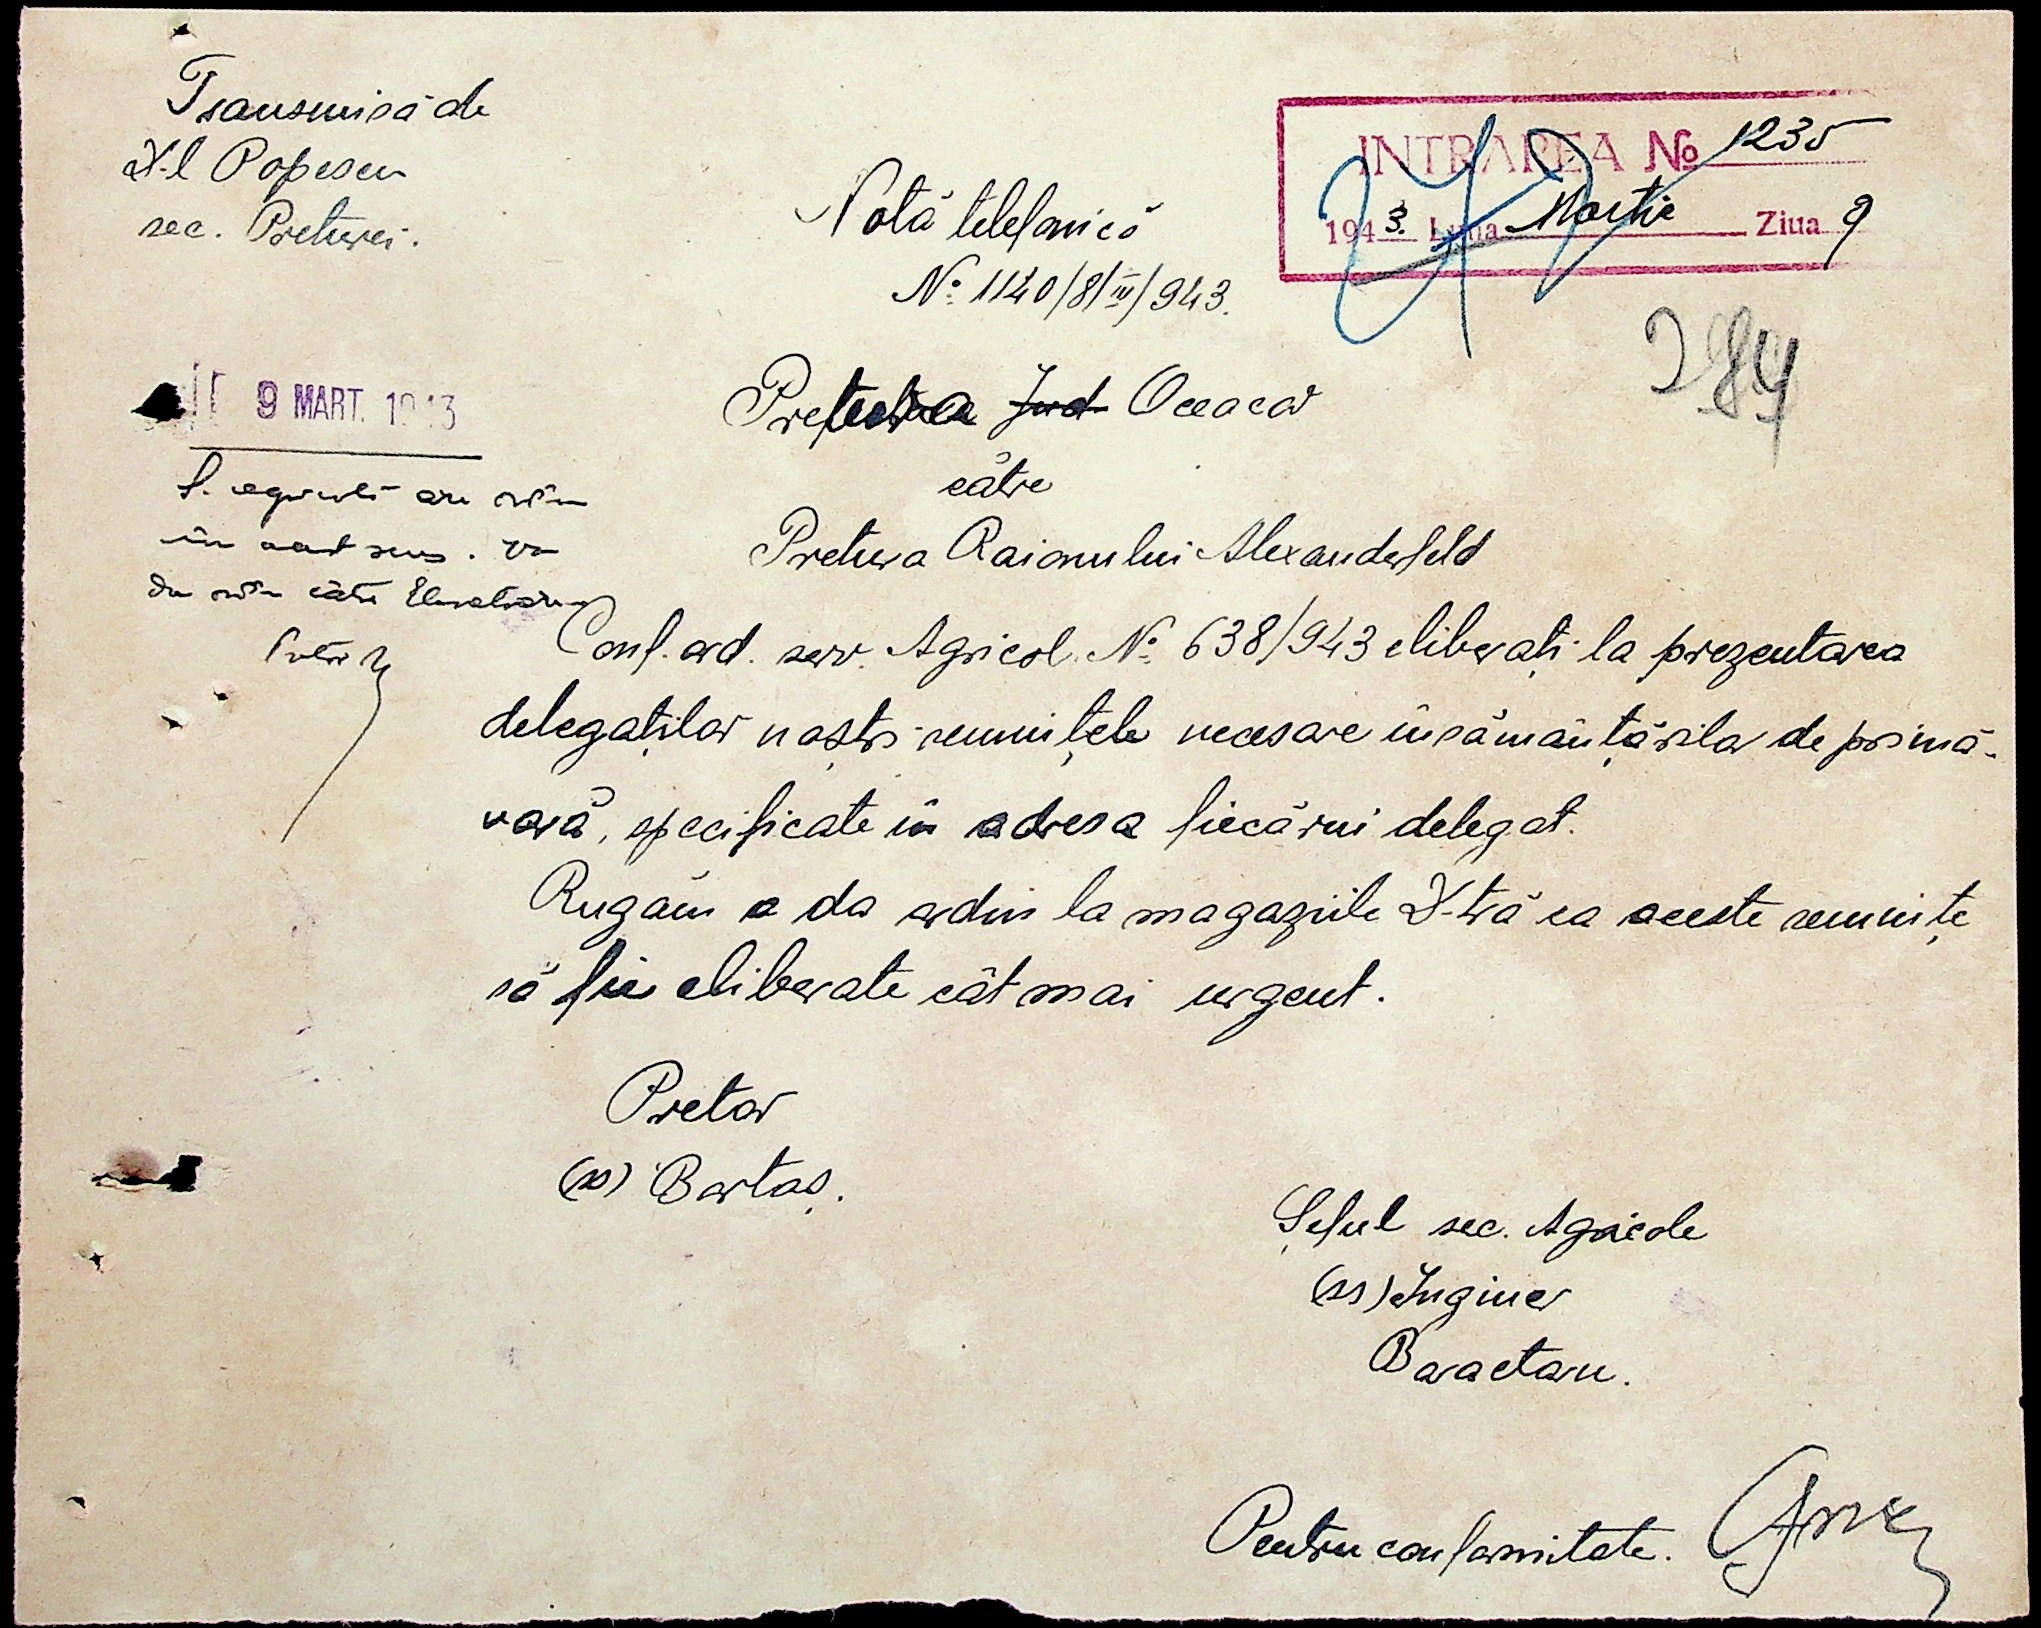 Transmisă de
D-l Popescu
sec. Preturei.
INTRAREA No 1235
1943. Luna Martie Ziua 9
Notă telefonică
No. 1140/8/IV/943.
284
9 MART. 1943
Pretura Jud Oceacov
către
Pretura Raionului Alexanderfeld
în acest sens. Va
da către
Conf. ord. serv. Agricol. No. 638/943 eliberați la prezentarea
delegaților noștri semințele necesare însămânțărilor de primă-
vară, specificate în adresa fiecărui delegat.
Rugăm a da ordin la magaziile D-tră ca aceste semințe
să fie eliberate cât mai urgent.
Pretor
(ss) Bartaș.
Șeful sec. Agricole
(ss) Inginer
Baractaru.
Pentru conformitate.